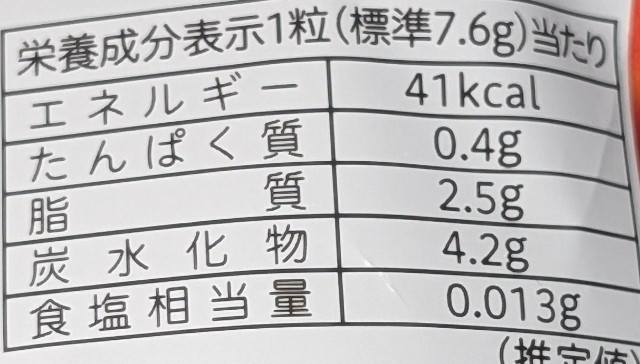 栄養成分表示1粒(標準7.6g)当たり
エネルギー 41kcal
たんぱく質 0.4g
脂質 2.5g
炭水化物 4.2g
食塩相当量 0.013g
(推定値)